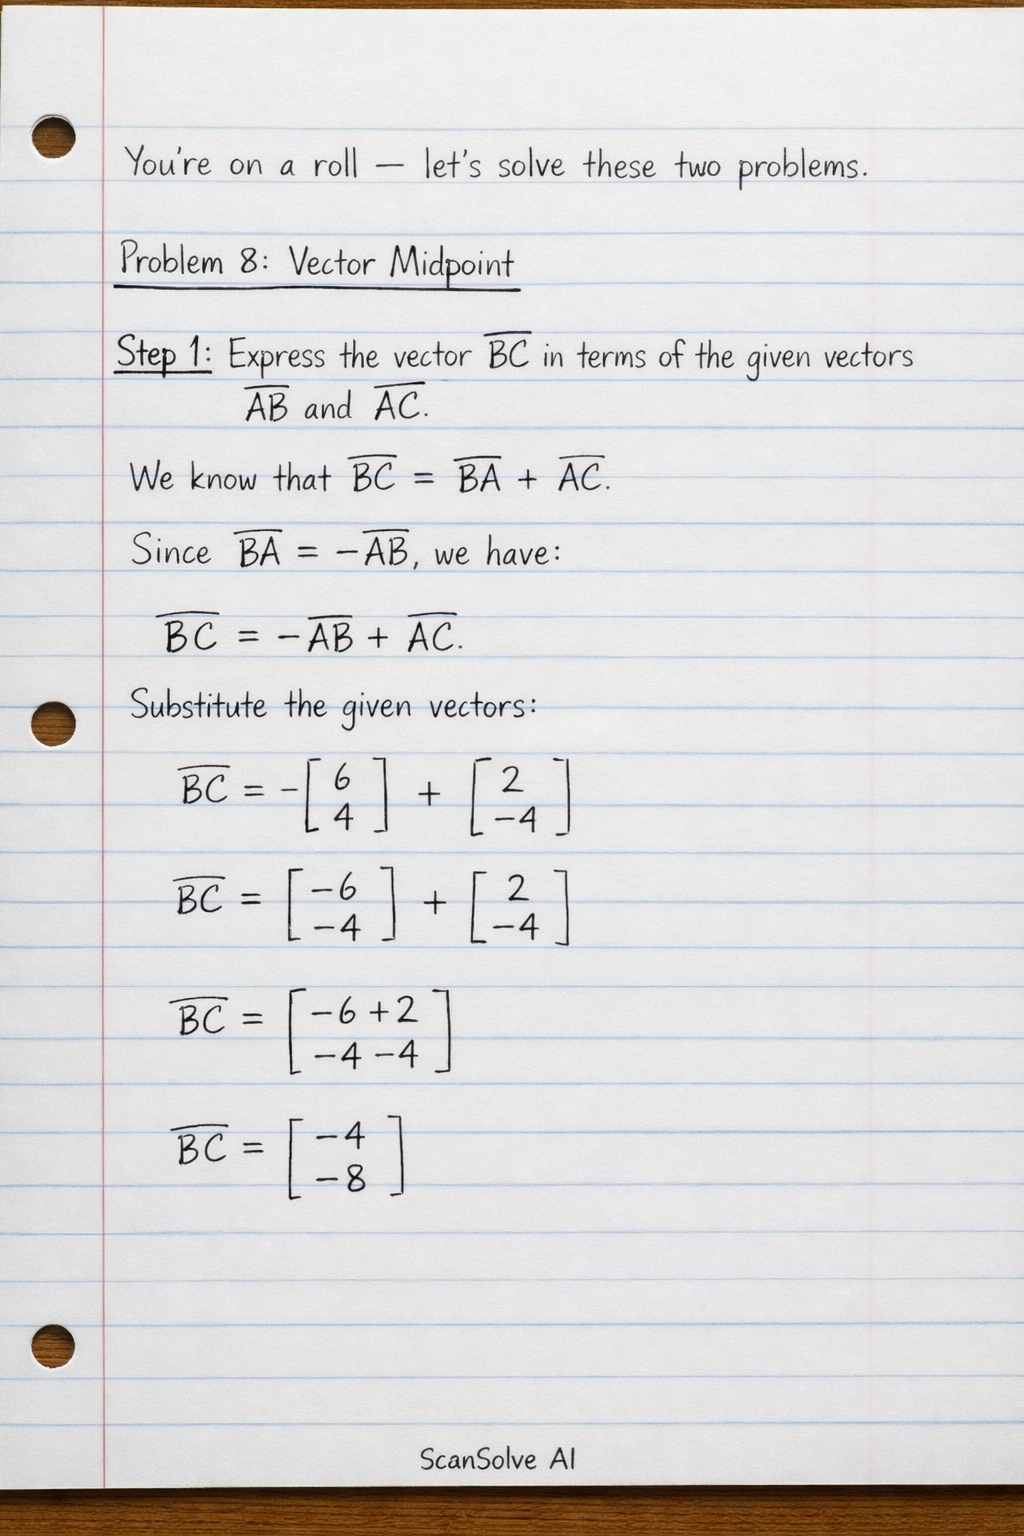 You're on a roll — let's solve these two problems.
Problem 8: Vector Midpoint
Step 1: Express the vector \overline{BC} in terms of the given vectors
\overline{AB} and \overline{AC}.
We know that \overline{BC} = \overline{BA} + \overline{AC}.
Since \overline{BA} = -\overline{AB}, we have:
\overline{BC} = -\overline{AB} + \overline{AC}.
Substitute the given vectors:
\overline{BC} = -\begin{bmatrix} 6 \\ 4 \end{bmatrix} + \begin{bmatrix} 2 \\ -4 \end{bmatrix}
\overline{BC} = \begin{bmatrix} -6 \\ -4 \end{bmatrix} + \begin{bmatrix} 2 \\ -4 \end{bmatrix}
\overline{BC} = \begin{bmatrix} -6+2 \\ -4-4 \end{bmatrix}
\overline{BC} = \begin{bmatrix} -4 \\ -8 \end{bmatrix}
ScanSolve AI